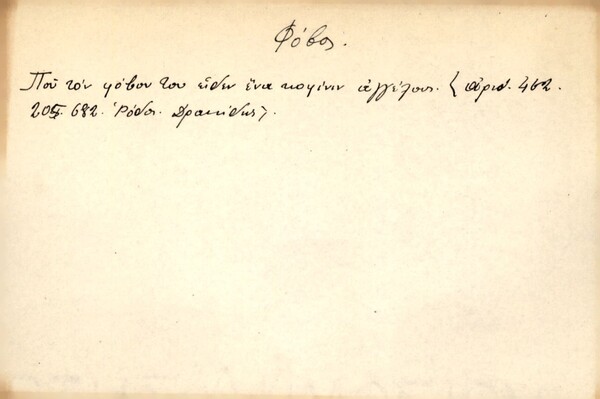 Φόβος.
Ποῦ τόν φόβον του εἶδεν ἕνα κοφίνιν ἀγγέλους. (ἀριθ. 462.
205. 682. Ρόδος. Δρακίδης).